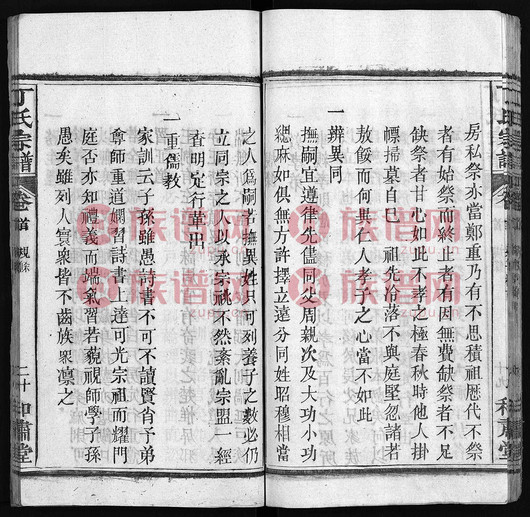 房私祭亦當鄭重乃有不思積祖歷代不祭
者有始祭而終止者有因無費缺祭者不足
缺祭者甘心如此不孝已極春秋時他人掛
幖掃墓自巳 祖先冷落不與庭堅忽諸若
敖餒而何與仁人孝子之心當不如此
一辨異同
撫嗣宜遵律先儘同父周親次及大功小功
緦麻如俱無方許擇立遠分同姓昭穆相當
丁氏宗譜
卷首
和肅堂
之人為嗣若撫異姓只可列養子之數必仍
立同宗之人以承宗祧不然紊亂宗盟一經
查明定行革出
一重儒教
家訓云子孫雖愚詩書不可不讀賢肖子弟
尊師重道嫻習詩書上達可光宗祖而耀門
庭否亦知禮義而端氣習若藐視師學子孫
愚矣雖列人寰衆皆不齒族衆凛之
丁氏宗譜
卷首
二十
和肅堂
族谱网
zupu.cn